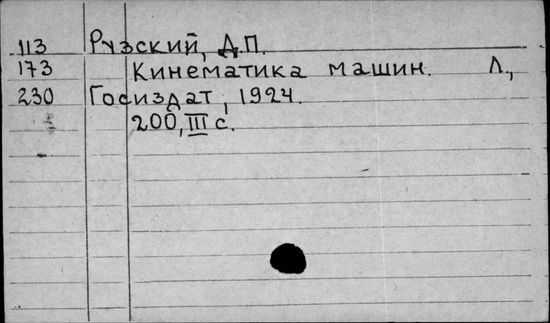 113 Рузский, Д.П.
173 Кинематика машин. Л.,
230 Госиздат, 1924.
200, III с.